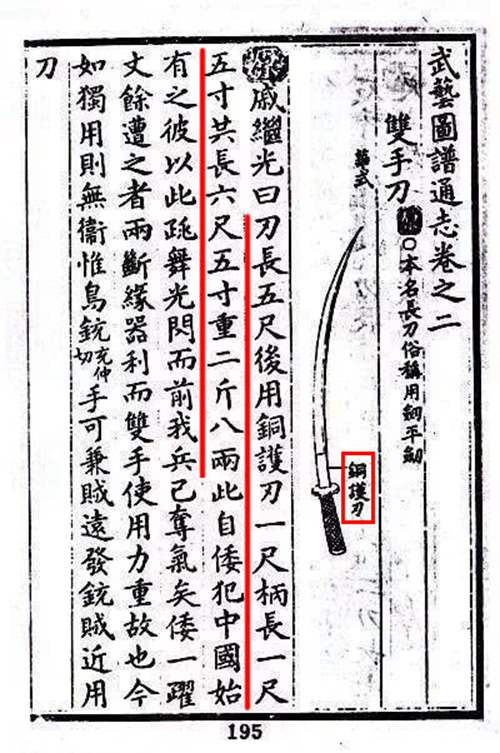 武藝圖譜通志卷之二
雙手刀
○本名長刀俗稱用劒平劒
式
銅護刃
戚繼光曰刀長五尺後用銅護刃一尺柄長一尺
五寸共長六尺五寸重二斤八兩此自倭犯中國始
有之彼以此跳舞光閃而前我兵已奪氣矣倭一躍
丈餘遭之者兩斷緣器利而雙手使用力重故也今
如獨用則無衞惟鳥銃充仲切手可兼賊遠發銃賊近用
刀
195